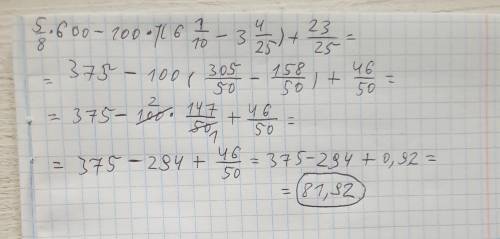 5/8 · 600 - 100 · (6 1/10 - 3 4/25) + 23/25 =
= 375 - 100 ( 305/50 - 158/50 ) + 46/50 =
= 375 - 100 2 · 147/50 1 + 46/50 =
= 375 - 294 + 46/50 = 375 - 294 + 0,92 =
= 81,92